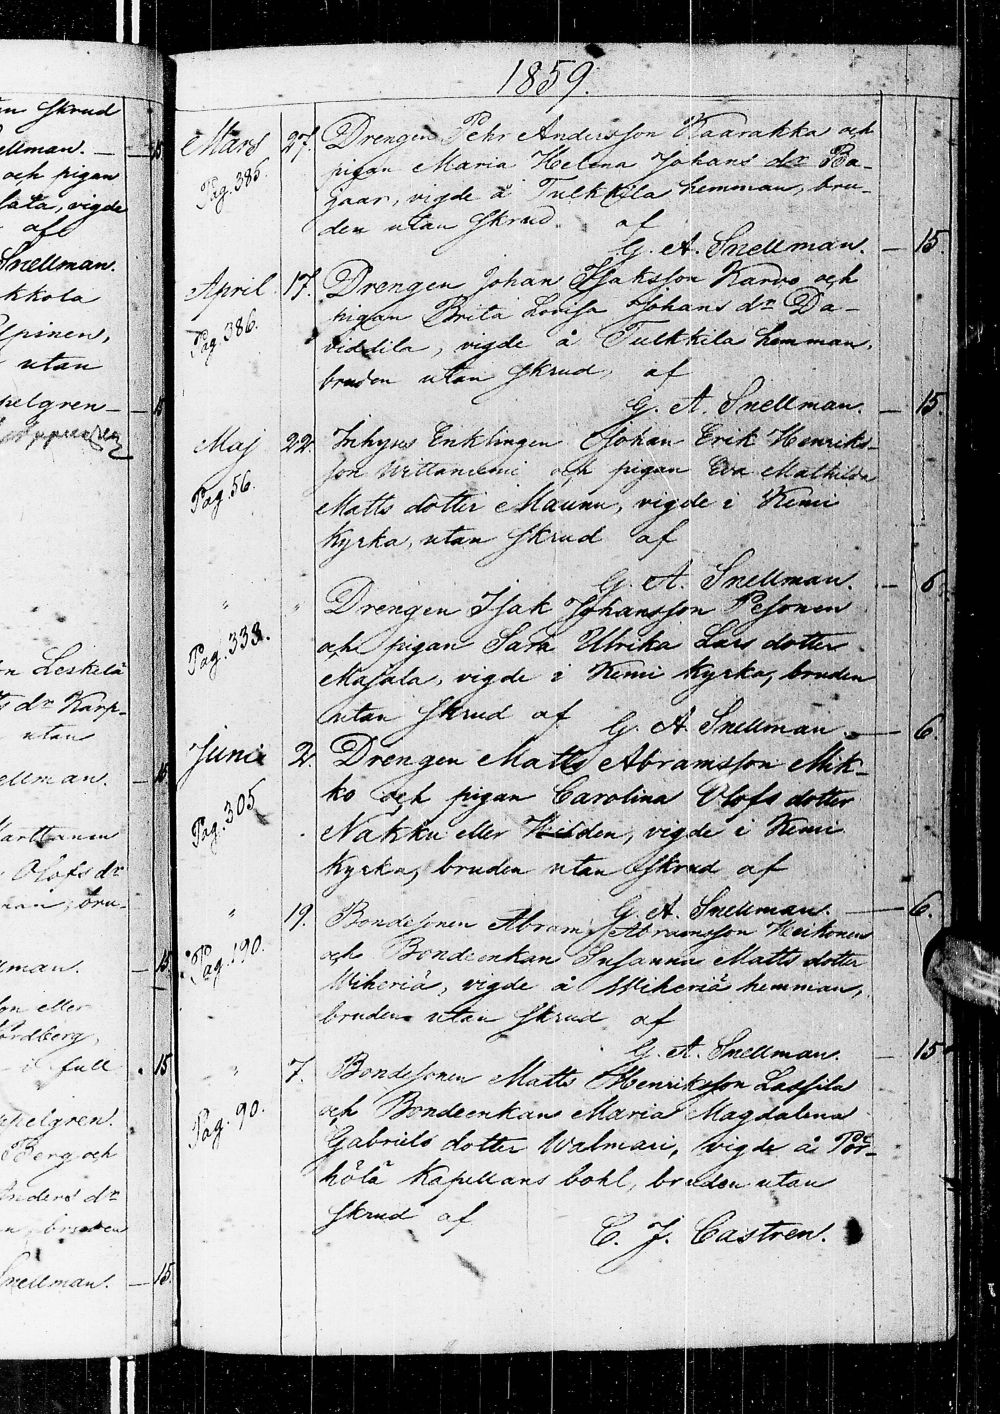 en Skrud
ellman. — 15
och pigan
sata, vigde
af
Snellman.
kkola
lpinen,
utan
pelgren — 15
on Leskelä
ts dr Karp-
utan
ellman. — 15
Karttunen
Olofs dr
man, bru-
lman. — 15
son eller
Nordberg,
i full — 15
ppelgren.
Berg och
Anders dr
n, bruden
Snellman. — 15.
1859.
Mars 27. Drengen Pehr Andersson Kaarakka och
Pag. 385. pigan Maria Helena Johans dr Ba-
jaar, vigde å Tulkkila hemman, bru-
den utan Skrud. af
G. A. Snellman. — 15.
April 17. Drengen Johan Isaksson Karvo och
Pag. 386. pigan Brita Lovisa Johans dr Da-
viddila, vigde å Tulkkila hemman,
bruden utan Skrud, af
G. A. Snellman. — 15.
Maj 22. Inhyses Enklingen Johan Erik Henriks-
son Wittaniemi och pigan Eva Mathilda
Pag. 56. Matts dotter Maunu, vigde i Kemi
Kyrka, utan Skrud af
G. A. Snellman. — 6.
" " Drengen Isak Johansson Pesonen
Pag. 333. och pigan Sara Ulrika Lars dotter
Masala, vigde i Kemi Kyrka, bruden
utan Skrud af G. A. Snellman. — 6.
Juni 2. Drengen Matts Abramsson Mik-
Pag. 305 ko och pigan Carolina Olofs dotter
Nakku eller den, vigde i Kemi
Kyrka, bruden utan Skrud af
G. A. Snellman. — 6.
" 19. Bondesonen Abram Abramsson Heikonen
Pag. 190. och Bondeenkan Susanna Matts dotter
Wiheriä, vigde å Wiheriä hemman,
bruden utan Skrud af
G. A. Snellman. — 15
" 7. Bondesonen Matts Henriksson Lassila
Pag. 90. och Bondeenkan Maria Magdalena
Gabriels dotter Walmari, vigde å Pör-
hölä Kapellans bohl, bruden utan
Skrud af
C. J. Castren.